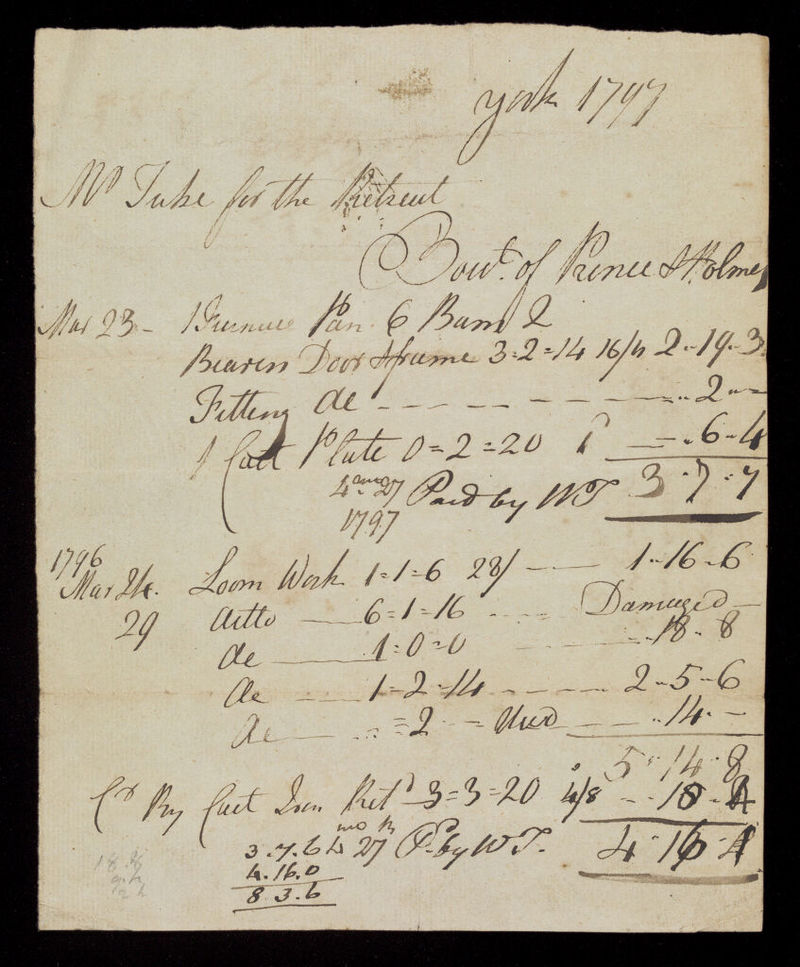 York 1797
Mr Tuke for the Retreat
Bout. of Prince & Holmes
Mar 23 - 1 Furnace Pan 6 Bars 2
Bearers Door & frame 3=2=14 16/ 2..19..3
Fitting do - - - - - - .. 2 ..-
1 Cast Plate 0=2=20 - .. 6..4
3 . 7 . 7
4 mo 27 Paid by WT
1797
1796
Mar 24. Loom Work 1=1=6 28/ — 1..16..6
29 ditto — 6=1=16 .... Damaged —
do — 1=0=0 .. 18.. 8
do — 1=2=14 - - - - 2..5..6
do — .. =2 — Used — ..14. -
5 . 14 . 8
Cr By Cast Iron Retd 3=3=20 4/8 - ..18..
4 . 16 .
3.7.6 4 mo 27 Pd. by WT.
4.16.0
8.3.6
18.8